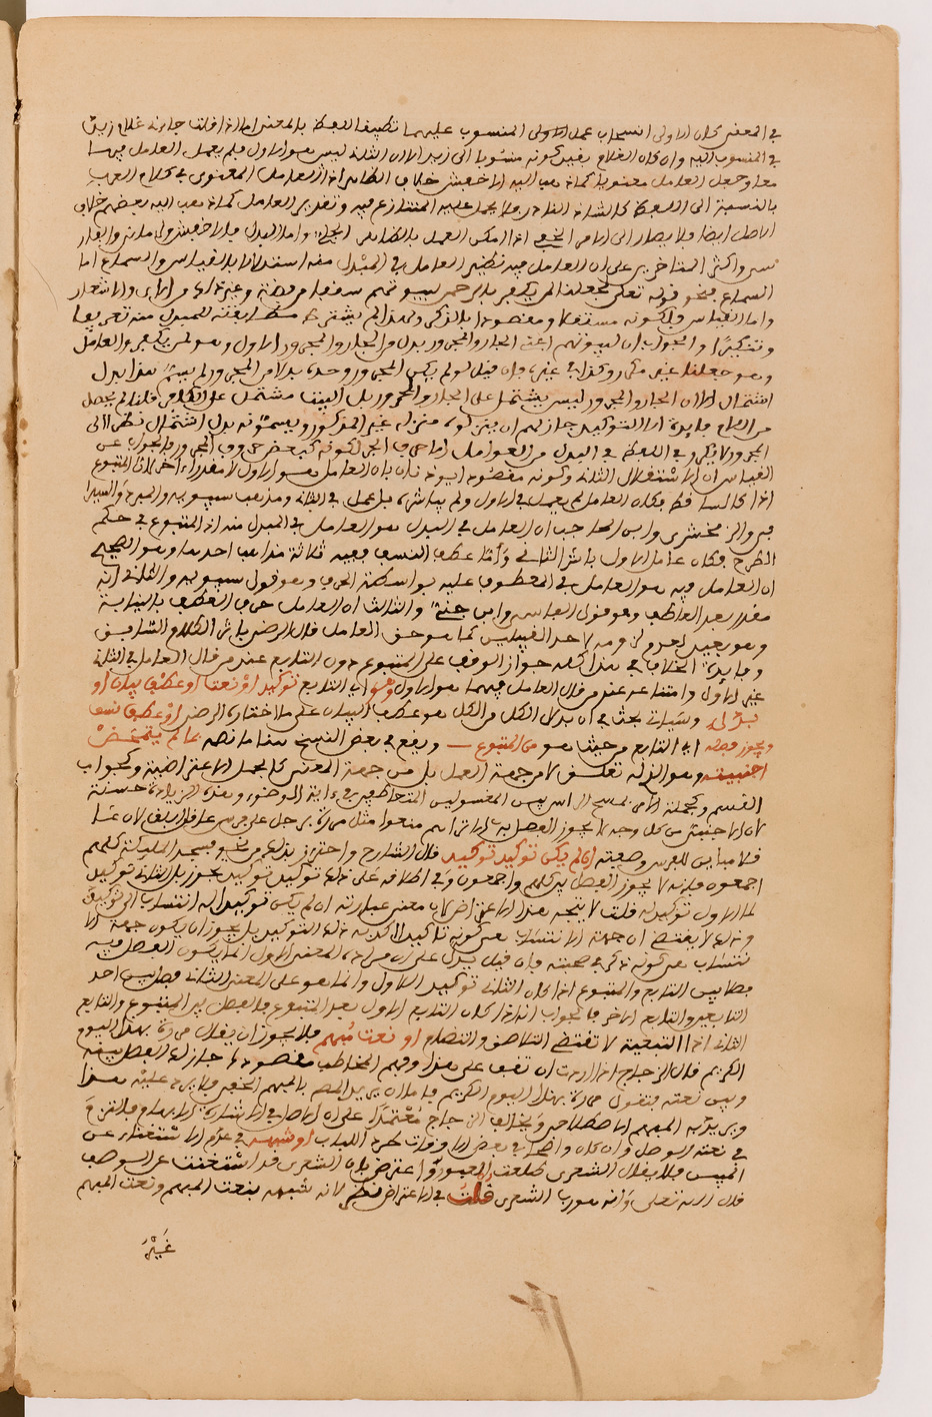 في المعنى كان الاولى انسحاب عمل الاولى المنسوب عليهما تطبيقا للفظ بالمعنى اما اذا قلت جاءني غلام زيد
في المنسوب اليه وان كان الغلام بغير كونه منسوبا الى زيد الا ان الثاني ليس هو الاول فلم يعمل العامل فيهما
معا وجعل العامل معنويا كما ذهب اليه الاخفش خلاف الظاهر اذ العامل المعنوي في كلام العرب
بالنسبة الى اللفظ كالشاذ النادر فلا يحمل عليه المتنازع فيه وتقدير العامل كما ذهب اليه بعضهم خلاف
الاصل ايضا فلا يصار الى الامر الخفي اذا امكن العمل بالظاهر الجلي واما البدل فالاخفش والرماني والفار
سي واكثر المتاخرين على ان العامل فيه نظير العامل في المبدل منه استدلالا بالقياس والسماع اما
السماع فنحو قوله تعلى لجعلنا لمن يكفر بالرحمن لبيوتهم سقفا من فضة وغير ذلك من الاي والاشعار
واما القياس فلكونه مستقلا ومقصودا بالذكر ولهذا لم يشترط مطابقته للمبدل منه تعريفا
وتنكيرا والجواب ان لبيوتهم اعني الجار والمجرور بدل من الجار والمجرور الاول وهو لمن يكفر والعامل
وهو جعلنا غير مكرر وكذا في غيره فان قيل لو لم يكن المجرور وحده بدلا من المجرور لم يسم هذا بدل
اشتمال لان الجار والمجرور ليس يشتمل على الجار والمجرور بل البيت مشتمل على الكافر قلنا لم يحصل
من اللام فايدة الا التوكيد جاز لهم ان ينزلوه منزلة غير المذكور ويسموه بدل اشتمال نظرا الى
المجرور لا يكرر في اللفظ في البدل من العوامل الا حرف الجر لكونه كبعض حروف المجرور والجواب عن
القياس ان الاستقلال الثاني وكونه مقصودا يوذنان بان العامل هو الاول لا مقدر اخر لان المتبوع
اذا كالساقط فكان العامل لم يعمل في الاول ولم يباشره بل عمل في الثاني ومذهب سيبويه والمبرد والسيرا
في والزمخشري وابن الحاجب ان العامل في البدل هو العامل في المبدل منه اذ المتبوع في حكم
الطرح فكان عامل الاول باشر الثاني وأمّا عطف النسق ففيه ثلاثة مذاهب احدها وهو الصحيح
ان العامل فيه هو العامل في المعطوف عليه بواسطة الحرف وهو قول سيبويه والثاني انه
مقدر بعد العاطف وهو قول الفارسي وابن جني والثالث ان العامل حرف العطف بالنيابة
وهو بعيد لعدم لزومه لاحد القبيلين كما هو حق العامل قال الرضي باثر الكلام السابق
وفايدة الخلاف في هذا كله جواز الوقف على المتبوع دون التابع عند من قال العامل في الثاني
غير الاول وامتناعه عند من قال العامل فيهما هو الاول وهو اي التابع توكيد او نعت او عطف بيان او
بدل وسيات بحث في ان بدل الكل من الكل هو عطف البيان على ما اختاره الرضي او عطف نسق
ويجوز فصله اي التابع من حيث هو من المتبوع ــ ووقع في بعض النسخ هنا ما نصه بما لم يتمحض
اجنبيته وهو الذي له تعلق لا من جهة العمل بل من جهة المعنى كالجمل الاعتراضية وكجواب
القسم وكجملة الامر لمسح الراس بين المغسولين المتعاطفين في اية الوضوء وهذه الزيادة حسنة
لان الاجنبي من كل وجه لا يجوز الفصل به الا تراهم منعوا مثل مررت برجل على فرس عاقل ابلق لان عاقلا
فلا مباين للفرس وصفته ان لم يكن توكيد توكيد قال الشارح واحترز بذلك من نحو فسجد الملائكة كلهم
اجمعون فانه لا يجوز الفصل بين كلهم واجمعون وفي اطلاقه على ذلك توكيد توكيد تجوز بل الثاني توكيد
لما الاول توكيد له قلت لا يتجه هذا الاعتراض لان معنى عبارته ان لم يكن توكيد اي انتساب الى توكيد
وذلك لا يقتضي ان جهة الانتساب هي كونه تاكيدا لكدية ذلك التوكيد بل يجوز ان يكون جهة الا
نتساب هي كونه ذكر في صحبته فان قيل يدل على ان مراده المعنى الاول انما يكون الفصل فيه
فصلا بين التابع والمتبوع اذا كان الثاني توكيد الاول وانما هو على المعنى الثاني فصل بين احد
التابعين والتابع الاخر فالجواب انه اذا كان التابع الاول بعد المتبوع فالفصل بين المتبوع والتابع
الثاني اذ التبعية لا تقتضي التلاصق والتضام او نعت مبهم فلا يجوز ان يقال مررت بهذا اليوم
الكريم قال الزجاج اذا اردت ان تقف على هذا وفهم المخاطب مقصودك جاز لك الفصل بينه
وبين نعته فتقول مررت بهذا اليوم الكريم فاما ان يريد المص بالمبهم الخفي فلا يرد عليه هذا
ويريد به المبهم الاصطلاحي ويخالف الزجاج معتمدا على ان الاصل في الاشارة الابهام فلا تنزع
في نعته الوصل وان كان واضحا في بعض الاوقات طردا للباب او شبهه في عدم الاستغناء عن
المبين فلا يقال الشعرى طلعت العبور واعترض بان الشعرى قد استغنت عن الوصف
قال الله تعلى وانه هو رب الشعرى قلت في الاعتراض نظر لانه شبهه بنعت المبهم ونعت المبهم
غَيْرَ